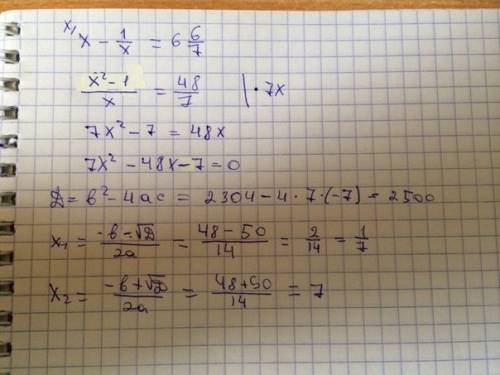 x₁ x - 1/x = 6 6/7
(x² - 1)/x = 48/7 | · 7x
7x² - 7 = 48x
7x² - 48x - 7 = 0
D = b² - 4ac = 2304 - 4 · 7 · (-7) = 2500
x₁ = (-b - √D)/2a = (48 - 50)/14 = 2/14 = 1/7
x₂ = (-b + √D)/2a = (48 + 50)/14 = 7